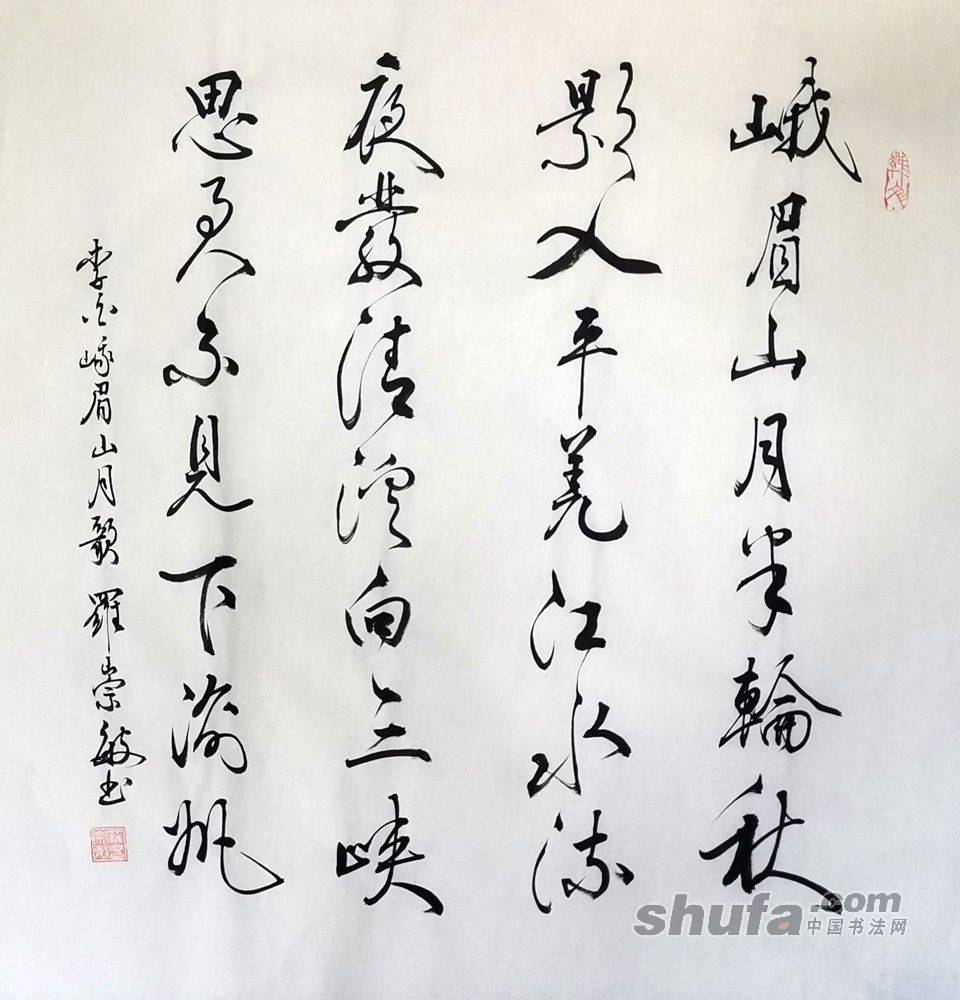 峨眉山月半輪秋
影入平羌江水流
夜發清溪向三峽
思君不見下渝州
李白峨眉山月歌 羅崇敏书
shufa.com
中国书法网